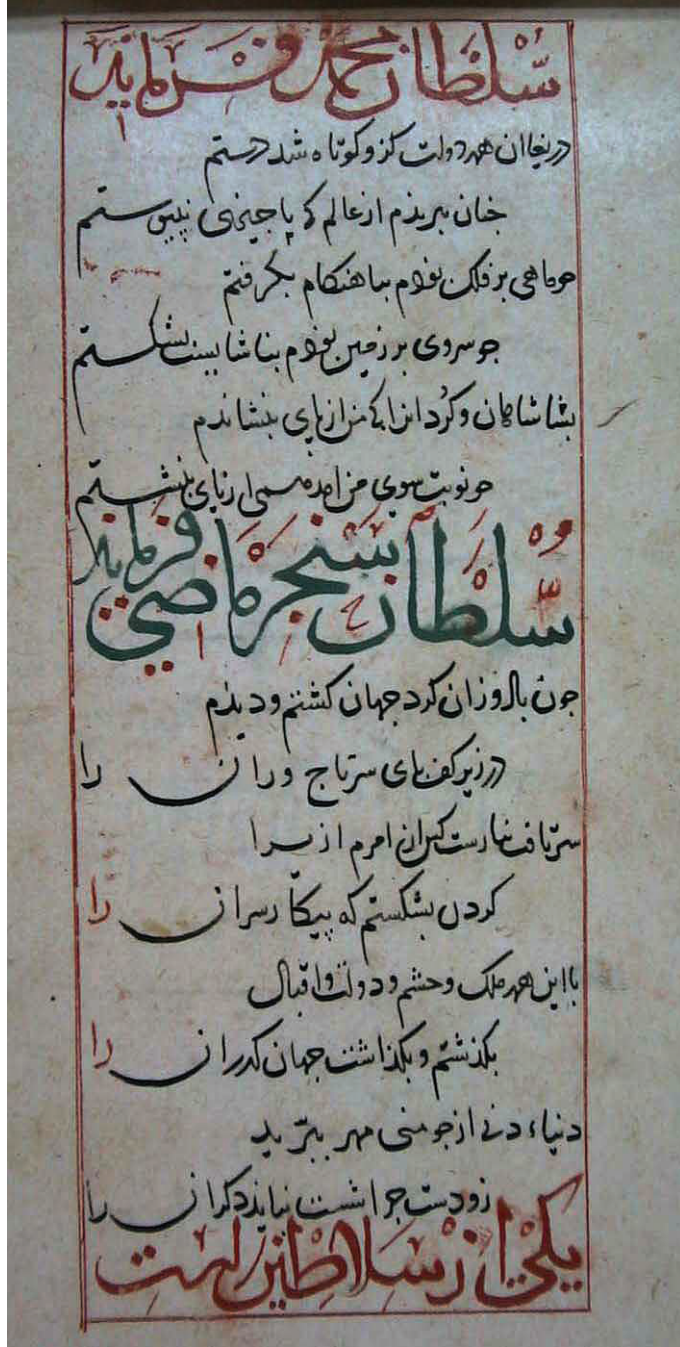 سلطان محمد فرماید
دریغا ان همه دولت کز و کوتاه شد دستم
جنان ببریذم از عالم که با جیزی نپیوستم
جو ماهی بر فلک بوذم بناهنکام بکرفتم
جو سروی بر زمین بوذم بناشایست بشکستم
بسا شاهان و کردانرا که من از پای بنشاندم
جو نوبت سوی من امد همی از پای بنشستم
سلطان سنجر ماضی فرماید
جون باذ روزان کرد جهان کشتم و دیذم
در زیر کف پای سر تاجوران را
سر تافت نیارست کس از امرم ازیرا
کردن بشکستم که پیکار سران را
با این همه ملک و حشم و دولت و اقبال
بکذشتم و بکذاشت جهان کذران را
دنیاء دنی از جو منی مهر ببرید
زو دست جرا شست نبایذ دکران را
یکی از سلاطین راست